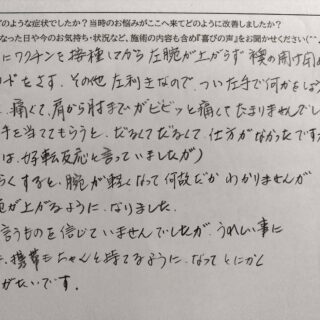 どのような症状でしたか？当時のお悩みがここへ来てどのように改善しましたか？
なった日や今のお気持ち・状況など、施術の内容も含め『喜びの声』をお聞かせください(^^
にワクチンを接種してから左腕が上がらず襖の開け閉め
をます。その他左利きなので、つい左手で何かをしよう
、痛くて、肩から肘までがビビッと痛くてたまりませんでし
手を当ててもらうと、だるくてだるくて、仕方がなかったですが
は、好転反応と言っていましたが)
らくすると、腕が軽くなって何故だかわかりませんが
が上がるように、なりました。
言うものを信じていませんでしたが、うれしい事に
、携帯もちゃんと持てるように、なってとにかく
がたいです。